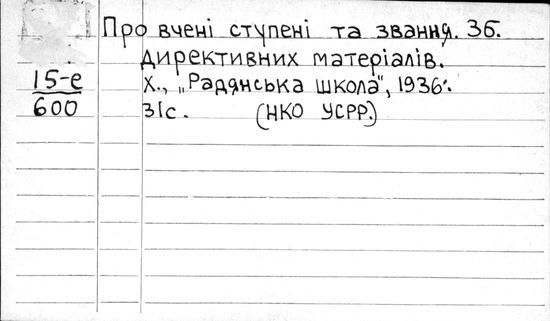 Про вчені ступені та звання. Зб.
директивних матеріалів.
15-е
600
Х., „Радянська школа", 1936.
31с. (НКО УСРР.)